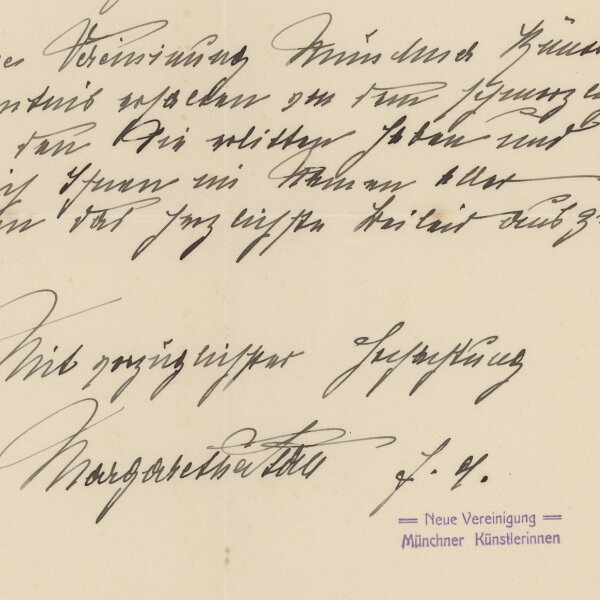 Vereinigung Münchner Künst
ntnis erhalten von dem schmerzli
den Sie erlitten haben und
ich Ihnen im Namen aller
n das herzlichste Beileid ausz
Mit vorzüglichster Hochachtung
Margarethe
Neue Vereinigung
Münchner Künstlerinnen